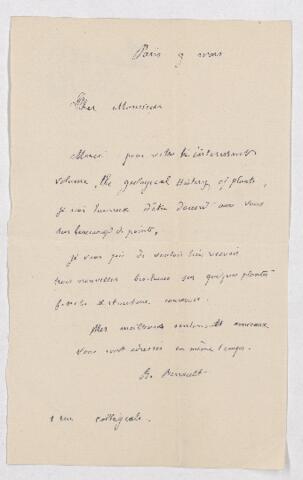 Paris 9 mars
Cher Monsieur
Merci pour votre très intéressant
volume, the geological History of plants,
je suis heureux d'être d'accord avec vous
sur beaucoup de points,
je vous prie de vouloir bien recevoir
trois nouvelles brochures sur quelques plantes
fossiles à structure conservée.
Mes meilleurs sentiments
vous sont adressés en même temps.
B. Renault
1 rue collégiale.